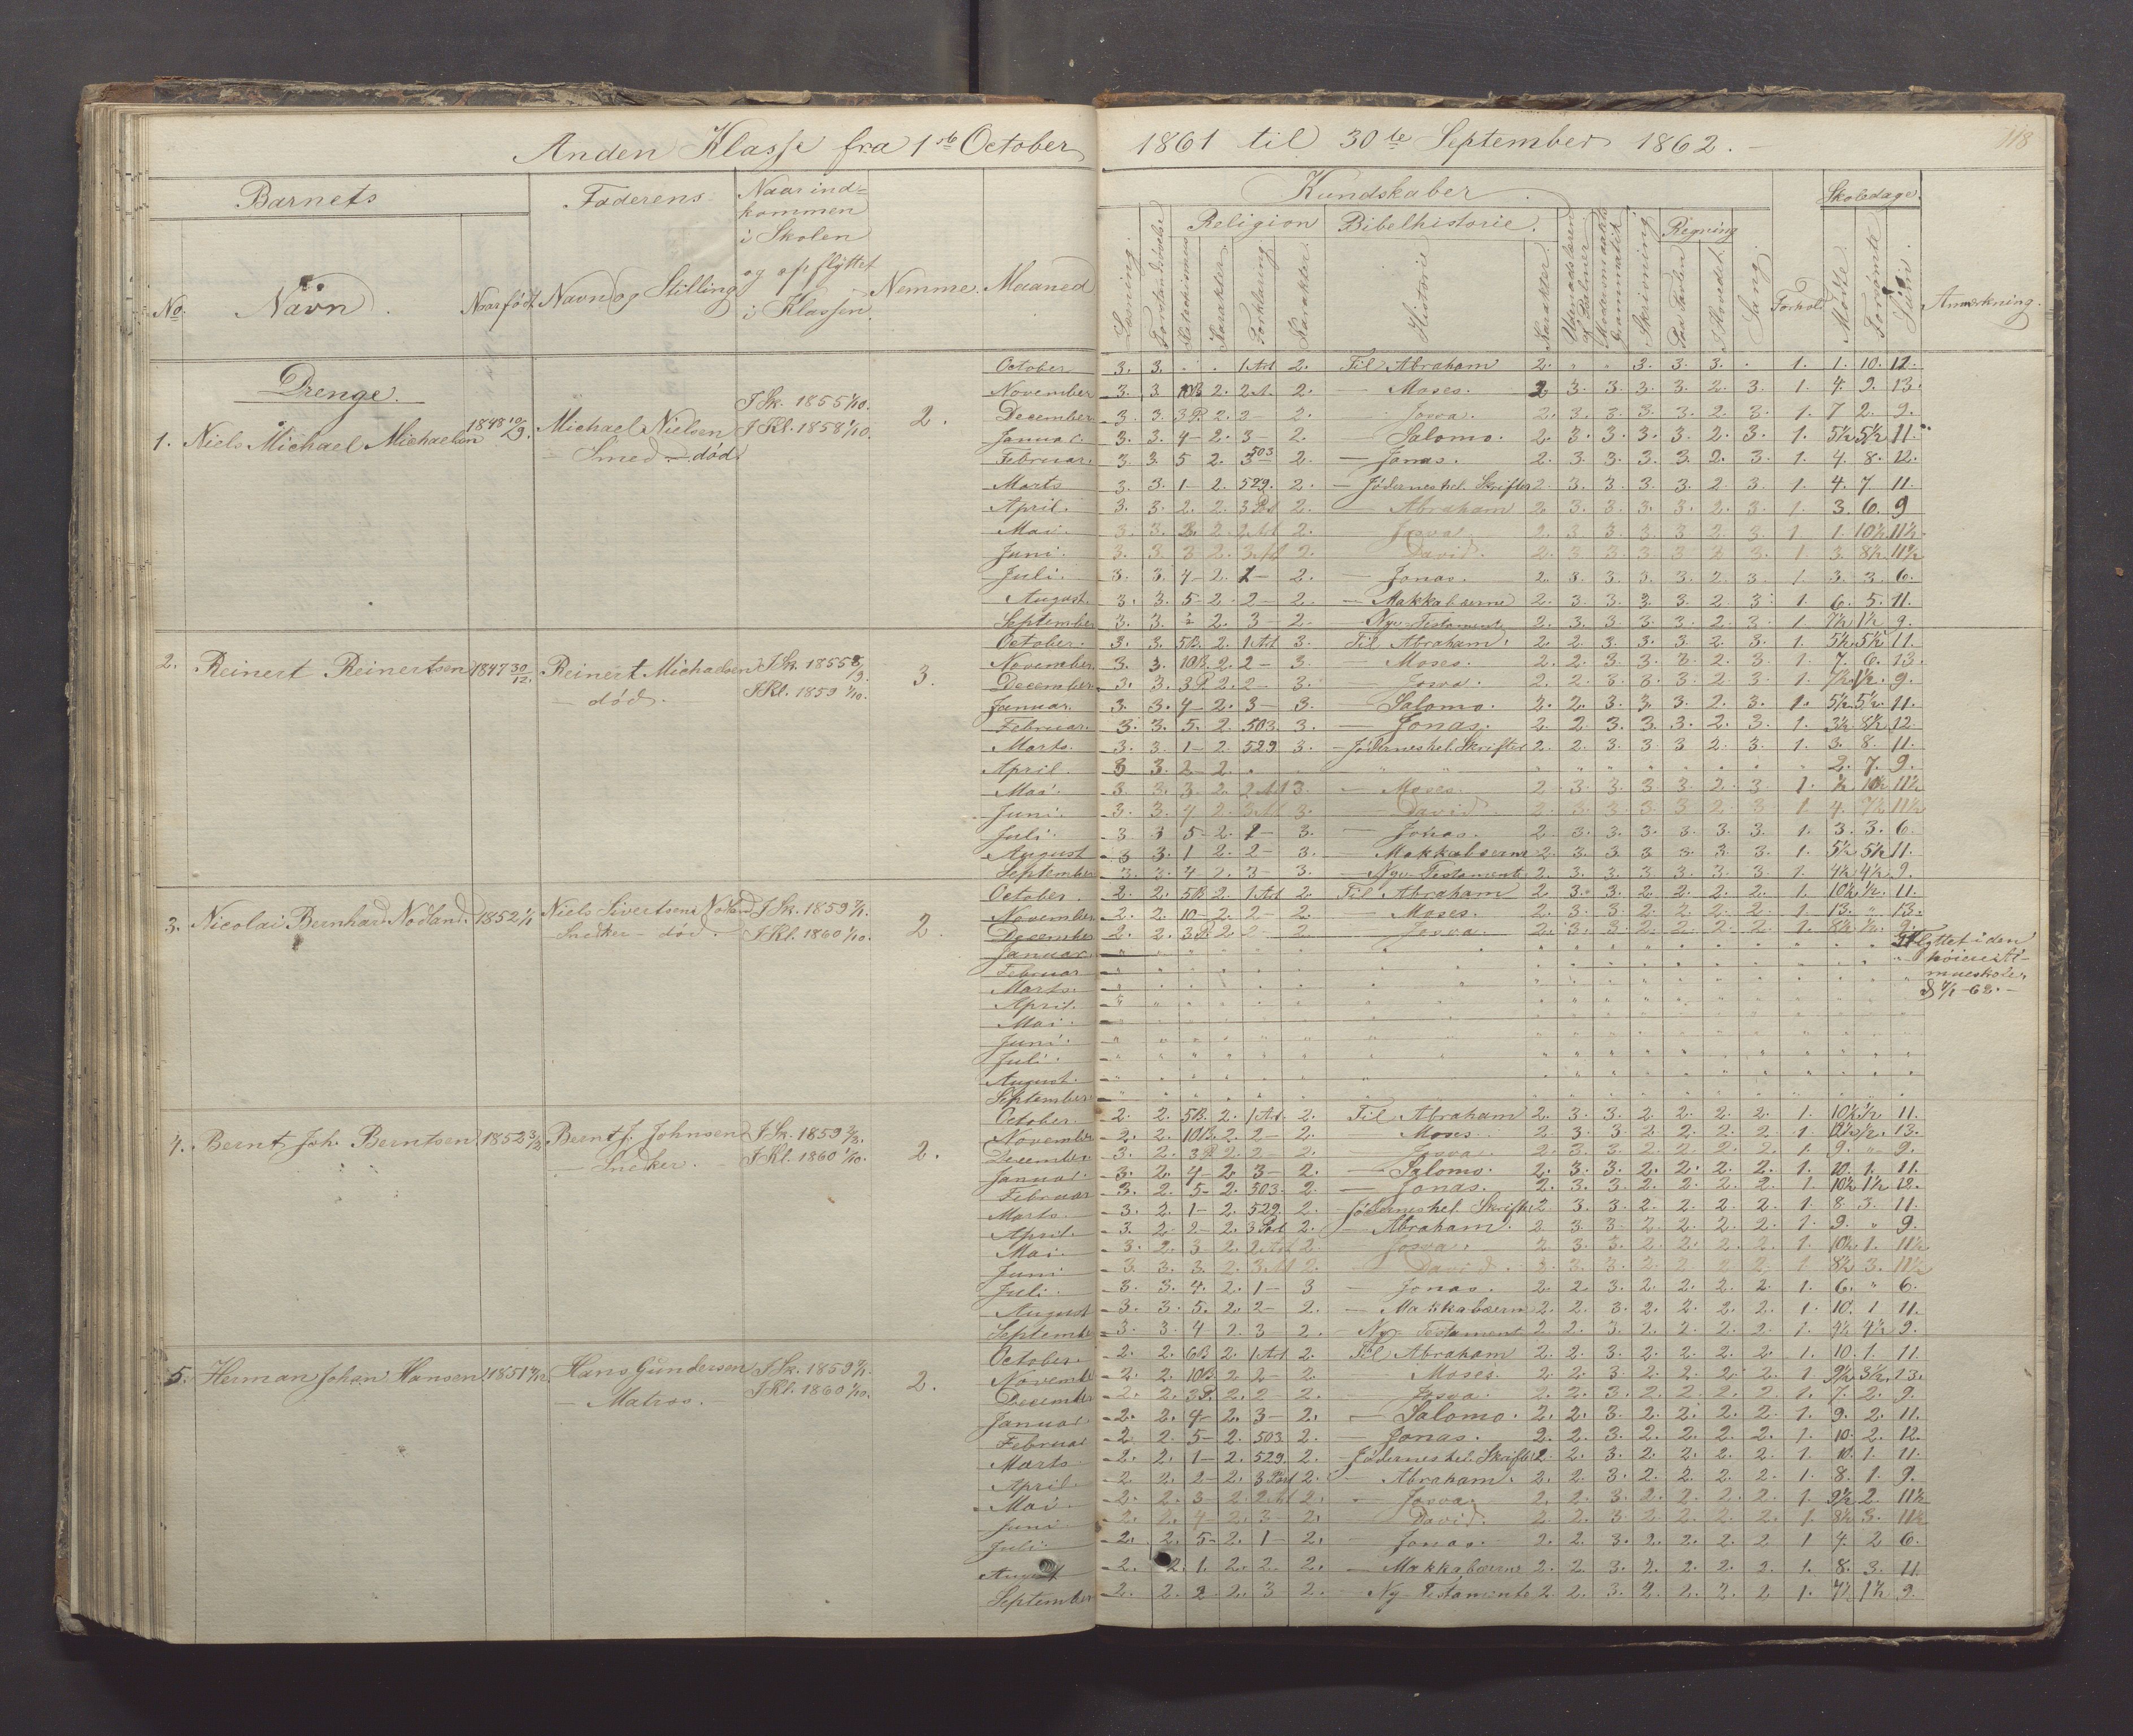 Anden Klasse fra 1ste October 1861 til 30te September 1862.
118
Barnets
Faderens
Naar ind-
kommen
i Skolen
og opflyttet
i Klassen
Kundskaber
Skoledage
Religion Bibelhistorie
Regning
No. Navn Naar født Navn og Stilling Nemme Maaned
Læsning
Karakter
Forklaring
Karakter
Historie
Karakter
Skrivning
Paa Tavlen
I Hovedet
Sang
Forhold
Mødte
Forsømte
Anmærkning.
Drenge.
1. Niels Michael Michaelsen 1848 10/9. Michael Nielsen I Sk. 1855 1/10. 2.
- Smed - død I Kl. 1858 1/10.
October 3. 3. 1 Art 2. Til Abraham 2. 3. 3. 3. 1. 1. 10. 12.
November 3. 3. 10B. 2. 2 A. 2. - Moses. 2 3. 3. 3. 3. 2. 3. 1. 4. 9. 13.
December 3. 3. 3P. 2. 2- 2. Josva. 2. 3. 3. 3. 3. 2. 3. 1. 7 2. 9.
Januar. 3. 3. 4- 2. 3- 2. - Salomo. 2. 3. 3. 3. 3. 2. 3. 1. 5½ 5½ 11.
Februar. 3. 3. 5 2. 503 2. - Jonas. 2. 3. 3. 3. 3. 2. 3. 1. 4. 8. 12.
Marts 3. 3. 1- 2. 529. 2. - Jødernes hel. Skrifter 2. 3. 3. 3. 3. 2. 3. 1. 4. 7. 11.
April. 3. 3. 2. 2. 3 Part 2. - Abraham 2. 3. 3. 3. 3. 2. 3. 1. 3. 6. 9
Mai. 3. 3. 2. 2 2 Art 2. Josva. 2. 3. 3. 3. 3. 2. 3. 1 1. 10½ 11½.
Juni. 3. 3. 3 2. 3 Art 2. David. 2. 3. 3. 3. 3 2. 3. 1. 3. 8½ 11½
Juli. 3. 3. 4- 2. 1- 2. - Jonas. 2. 3. 3. 3. 3. 2. 3. 1. 3. 3. 6.
August. 3. 3. 5- 2. 2- 2. - Makkabæerne 2. 3. 3. 3. 3. 2. 3. 1. 6. 5. 11.
September 3. 3. 2. 3- 2. - Nye Testamente 2. 3. 3. 3. 3. 2. 3. 1. 7½ 1½ 9.
2. Reinert Reinertsen 1847 30/12. Reinert Michaelsen I Sk. 1855 8/9. 3.
- død. - I Kl. 1859 1/10.
October. 3. 3. 5B. 2. 1 Art 3. Til Abraham. 2. 2. 3. 3. 3. 2. 3. 1. 5½ 5½ 11.
November. 3. 3. 10B. 2. 2- 3. - Moses. 2. 2. 3. 3. 3. 2. 3. 1. 7. 6. 13.
December. 3. 3. 3P. 2. 2- 3. - Josva. 2. 2. 3. 3. 3. 2. 3. 1. 7½ 1½. 9.
Januar. 3. 3. 4- 2. 3- 3. - Salomo. 2. 2. 3. 3. 3. 2. 3. 1. 5½ 5½. 11.
Februar. 3. 3. 5. 2. 503. 3. - Jonas. 2. 2 3. 3. 3. 2. 3. 1. 3½ 8½ 12.
Marts. 3. 3. 1- 2. 529. 3. - Jødernes hel. Skrifter 2. 2. 3. 3. 3 2. 3. 1. 3. 8. 11.
April. 3 3. 2- 2. 2. 7. 9.
Mai. 3. 3. 3- 2. 2 Art 3. - Moses. 2 3. 3. 3 3. 2. 3 1. ½ 10½ 11½
Juni. 3. 3. 4 2. 3 Art 3. - David. 2. 3. 3. 3. 3 2. 3 1. 4. 7½ 11½
Juli. 3 3 5- 2. 1- 3. - Jonas. 2. 3. 3. 3. 3. 3. 3. 1. 3. 3. 6.
August 3 3. 1 2. 2- 3. - Makkabæerne 2. 3. 3. 3 3. 3. 3. 1. 5½ 5½ 11.
September 3. 3. 4 2. 3- 3. - Nye Testamente 2. 3. 3. 3. 3. 3. 3. 1. 4½ 4½ 9.
3. Nicolai Bernhard Nodland. 1852 1/1 Niels Sivertsen Nodland I Sk. 1859 7/1. 2.
Snedker - død. I Kl. 1860 1/10.
October. 2. 2. 5B. 2. 1 Art 2. Til Abraham 2. 3. 3. 2. 2. 2. 2. 1. 10½ ½. 11.
November 2. 2. 10- 2. 2- 2. - Moses. 2. 3. 3. 2. 2. 2. 2. 1. 13. " 13.
December 2. 2. 3P. 2 2- 2. - Josva. 2. 3. 3. 2. 2. 2. 2. 1. 8½ ½. 9.
Januar.
Februar
Marts.
April.
Mai.
Juni.
Juli.
August.
September
Flyttet i den
høiere Al-
mueskole
d 7/1-62.-
4. Bernt Joh. Berntsen 1852 Bernt J. Johnsen I Sk. 1859 2.
- Snedker. I Kl. 1860 1/10.
October. 2. 2. 5B. 2. 1 Art. 2. Til Abraham 2. 3. 3. 2. 2. 2. 2. 1. 10½ ½ 11.
November 2. 2. 10B. 2. 2- 2. Moses 2. 3. 3. 2. 2. 2. 2. 1. 12½ ½. 13.
December 3. 2. 3P 2. 2- 2. - Josva. 2. 3. 3. 2. 2. 2. 2. 1. 9. " 9.
Januar. 3. 2. 4- 2. 3- 2. - Salomo. 2. 3. 3. 2. 2. 2. 2. 1. 10. 1. 11.
Februar 3. 2. 5- 2. 503. 2. - Jonas. 2. 3. 3. 2. 2. 2. 2. 1. 10½ 1½ 12.
Marts. 3. 2. 1- 2. 529. 2. Jødernes hel. Skrifter 2 3. 3 2. 2. 2. 2. 1. 8. 3. 11.
April. 3. 2 2- 2. 3 Part 2. - Abraham. 2 3 3 2. 2. 2. 2. 1. 9. " 9.
Mai. 3. 2. 3 2. 2 Art 2. - Josva. 2 3. 3. 2. 2. 2. 2. 1. 10½. 1. 11½
Juni 3. 3. 3. 2. 3 Art 2. David. 2. 3. 3. 2. 2. 2. 2. 1 8½ 3. 11½
Juli. 3. 3. 4. 2. 1- 3 - Jonas. 2. 2. 3. 2. 2. 2. 2. 1. 6. " 6.
August 3. 3. 5. 2. 2- 2. - Makkabæerne 2. 2. 3. 2. 2. 2. 2. 1. 10. 1 11.
September 3. 3. 4 2. 3- 2. - Nye Testament 2 2. 3. 2. 2. 2. 2. 1. 4½ 4½ 9.
5. Herman Johan Hansen 1851 Hans Gundersen I Sk. 1859 7/1. 2.
- Matros. - I Kl. 1860 1/10.
October. 2. 2. 6B 2. 1 Art 2. Til Abraham 2. 2. 3. 2. 2. 2. 2. 1. 10. 1. 11.
November 2. 2. 10B. 2. 2- 2. - Moses. 2. 2. 3. 2. 2. 2. 2. 1 9½ 3½. 13.
December 2. 2. 3P. 2. 2- 2. - Josva. 2. 2. 3. 2. 2. 2. 2. 1. 7. 2. 9.
Januar. 2. 2. 4- 2. 3- 2. - Salomo. 2. 2. 3. 2. 2. 2. 2. 1. 9. 2. 11.
Februar 2. 2. 5- 2. 503 2. - Jonas. 2. 2. 3. 2. 2. 2. 2. 1. 10. 2. 12.
Marts. 2. 2. 1- 2. 529. 2. - Jødernes hel. Skrifter 2. 2. 3. 2. 2. 2. 2. 1. 10. 1. 11.
April. 2. 2. 2- 2. 3 Part 2. - Abraham. 2. 2. 3. 2. 2. 2. 2. 1. 8. 1. 9.
Mai. 2. 2. 3- 2. 2 Art 2. - Josva. 2. 2. 3. 2. 2. 2. 2. 1. 9½ 2. 11½
Juni 2. 2. 4- 2. 3- 2. - David. 2. 2. 3. 2. 2. 2. 2. 1. 8½ 3. 11½
Juli. 2. 2. 5- 2. 1- 2. - Jonas. 2. 2. 3. 2. 2. 2. 2 1 4. 2 6.
August 2. 2. 1. 2. 2. 2. - Makkabæerne 2. 2. 3. 2. 2. 2. 2. 1. 8. 3. 11.
September 2. 2. 2- 2. 3- 2. - Ny Testamente 2 2. 3. 2. 2. 2. 2. 1. 7½ 1½ 9.